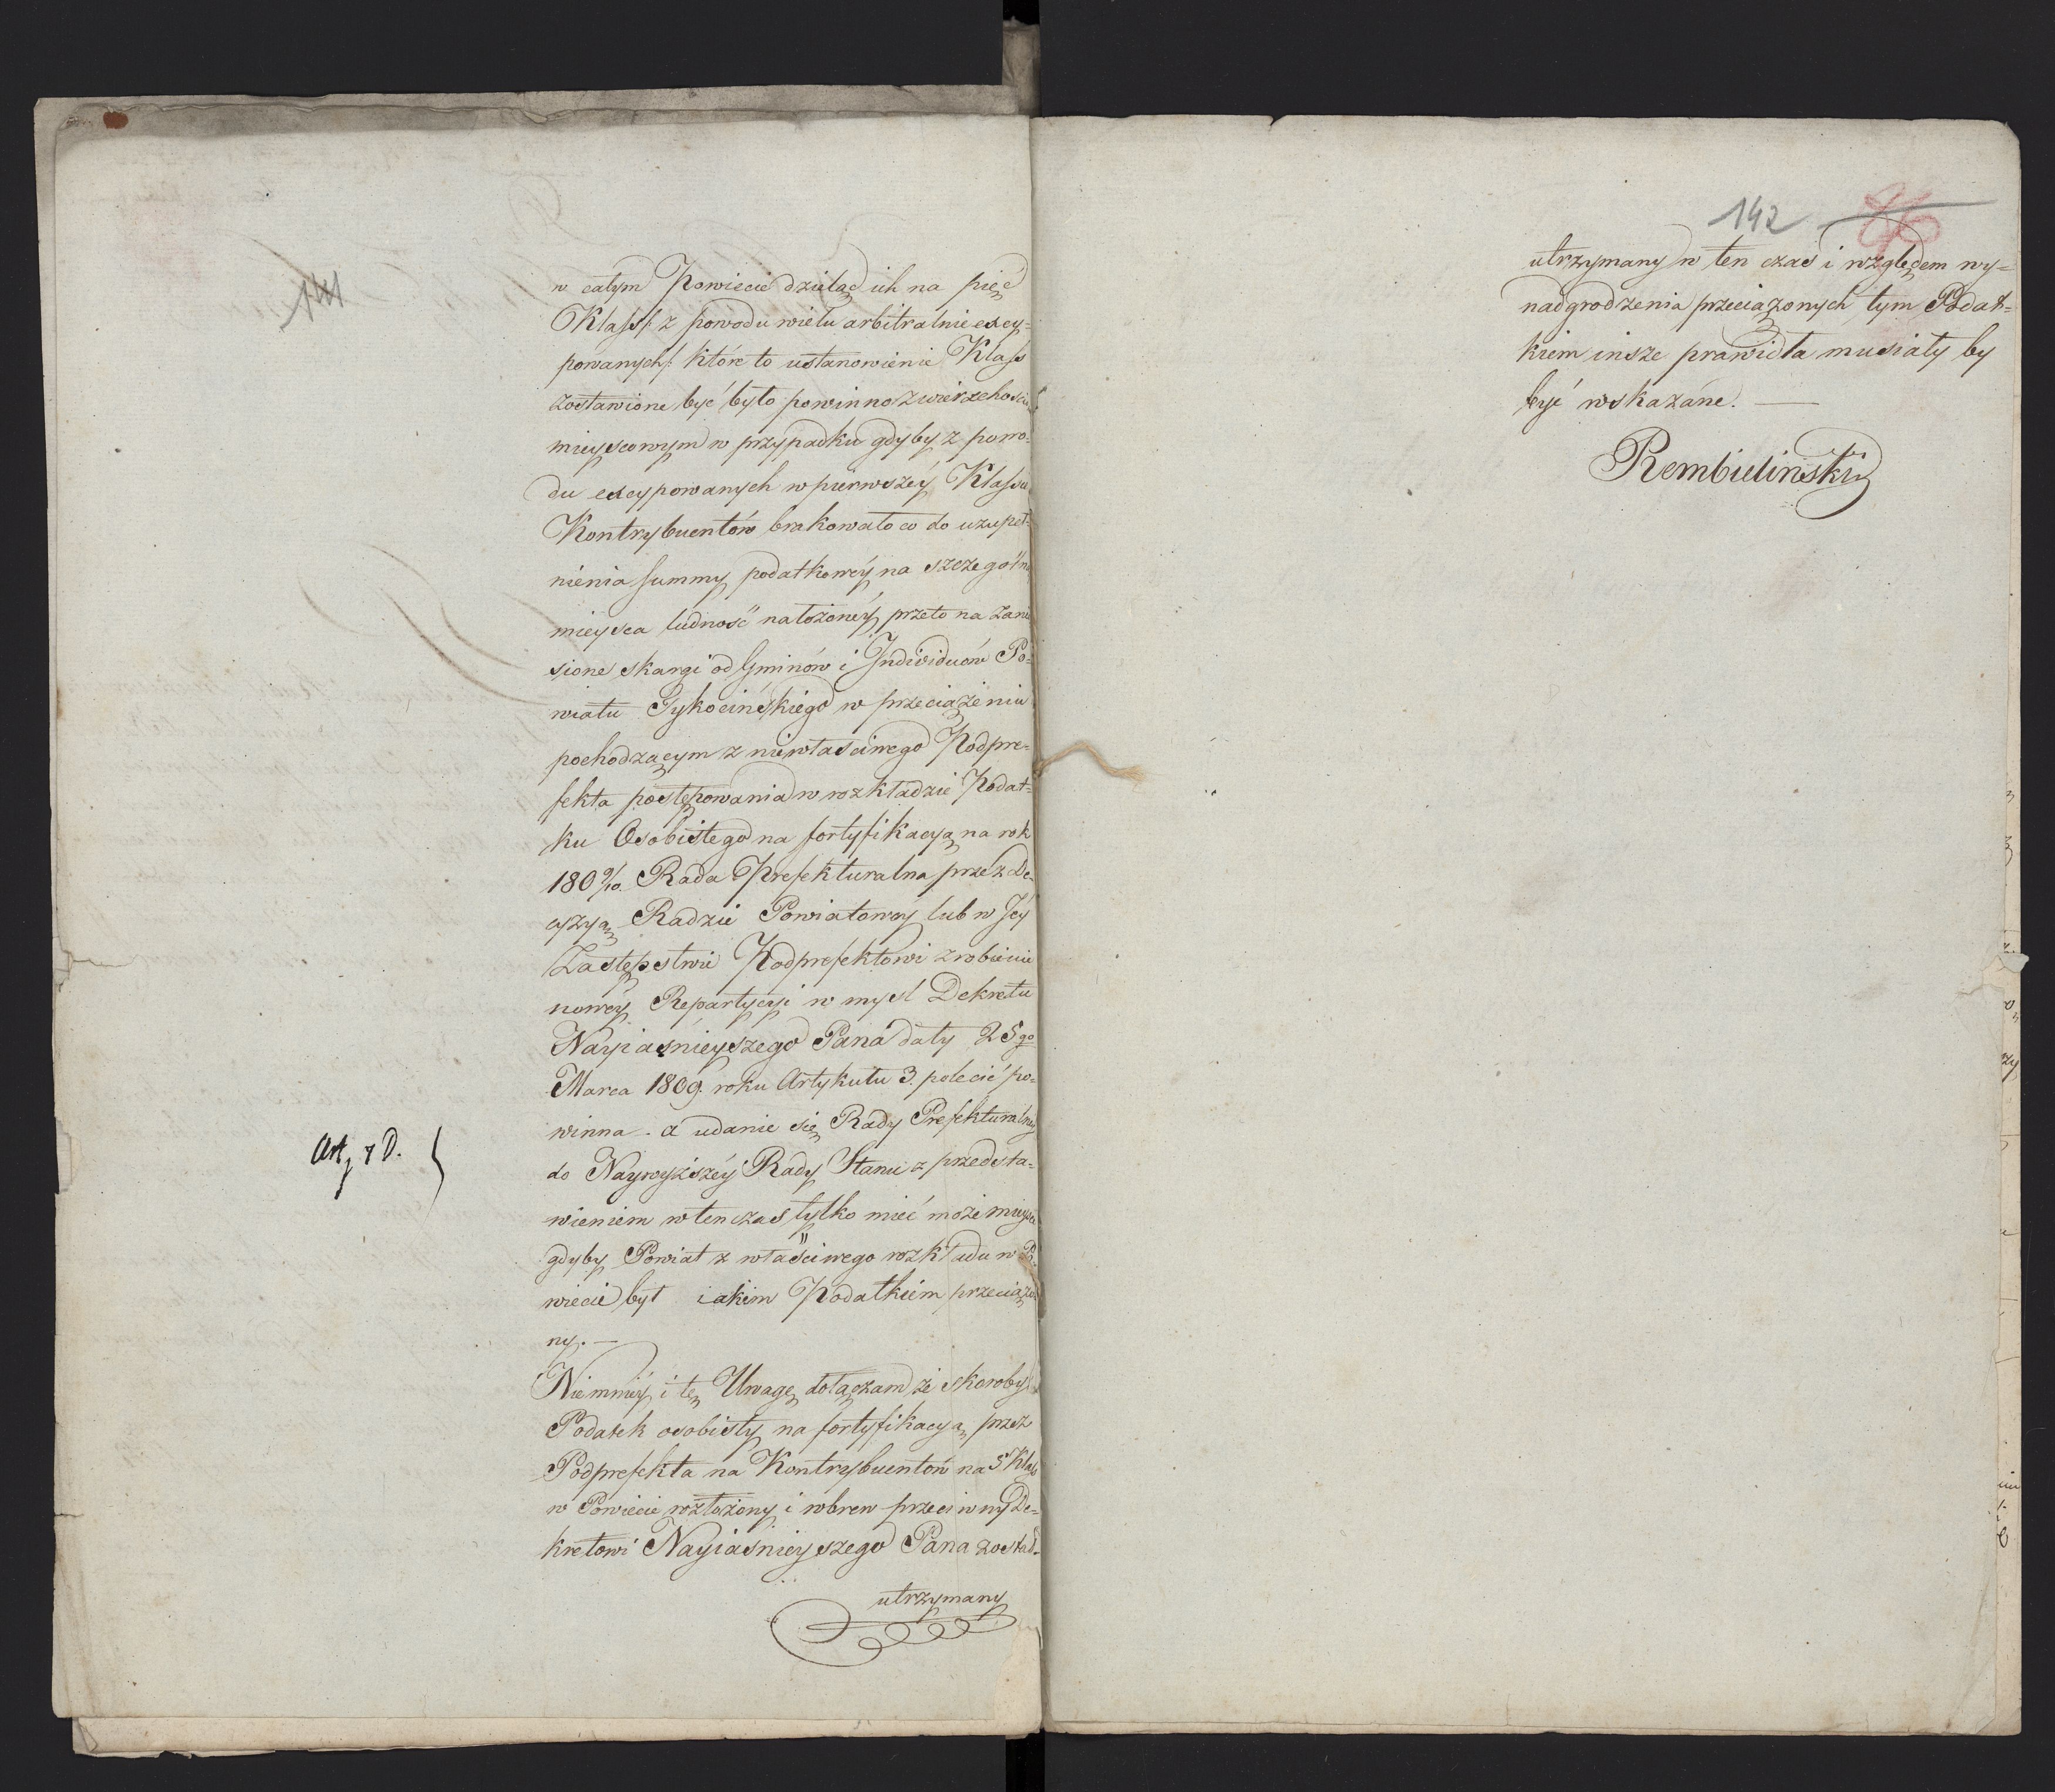 141
w całym Powiecie dzieląc ich na pięć
Klass/: z powodu wielu arbitralnie excy-
powanych:/ które to ustanowienie Klass
zostawione być było powinno zwierzchościom
mieyscowym w przypadku gdyby z powo-
du excypowanych w pierwszéy Klassie
Kontrybuentów brakowało co do uzupeł-
nienia summy podatkowéy na szczególną
mieysca ludność nałożonéy, przeto na zanie
sione skargi od Gminów i Individuów Po-
wiatu Tykocińskiego w przeciążeniu
pochodzącym z niewłaściwego Podpre-
fekta postępowania w rozkładzie Podat-
ku Osobistego na fortyfikacyą na rok
180 9/10. Rada Prefekturalna przez De-
cyzyą Radzie Powiatowey lub w Jéy
Zastępstwie Podprefektowi zrobienie
nowéy Repartycyi w myśl Dekretu
Nayiaśnieyszego Pana daty 25go
Marca 1809. roku Artykułu 3. polecić po-
winna. a udanie się Rady Prefekturalney
Art 7 D.
do Naywyższéy Rady Stanu z przedsta-
wieniem wtenczas tylko mieć może mieysce
gdyby Powiat z właściwego rozkładu w Po
wiecie był iakim Podatkiem przeciążo
ny. —
Niemniéy i tę Uwagę dołączam że skoroby
Podatek osobisty na fortyfikacyą przez
Podprefekta na Kontrybuentów na 5 Klass
w Powiecie rozłożony i wbrew przeciwny De-
kretowi Nayiaśnieyszego Pana został-
utrzymany
142
utrzymany w ten czas i względem wy-
nadgrodzenia przeciążonych tym Podat-
kiem insze prawidła musiały by
być wskazane. —
Rembieliński